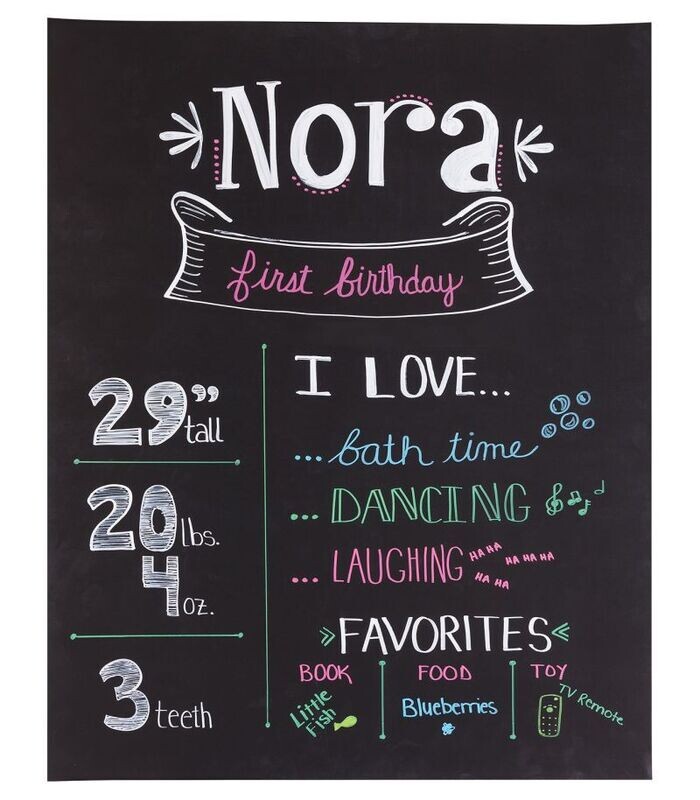 Nora
first birthday
29” tall
20 lbs.
4 oz.
3 teeth
I LOVE...
...bath time
...DANCING
...LAUGHING HA HA HA HA HA HA HA HA
FAVORITES
BOOK
Little
Fish
FOOD
Blueberries
TOY
TV Remote